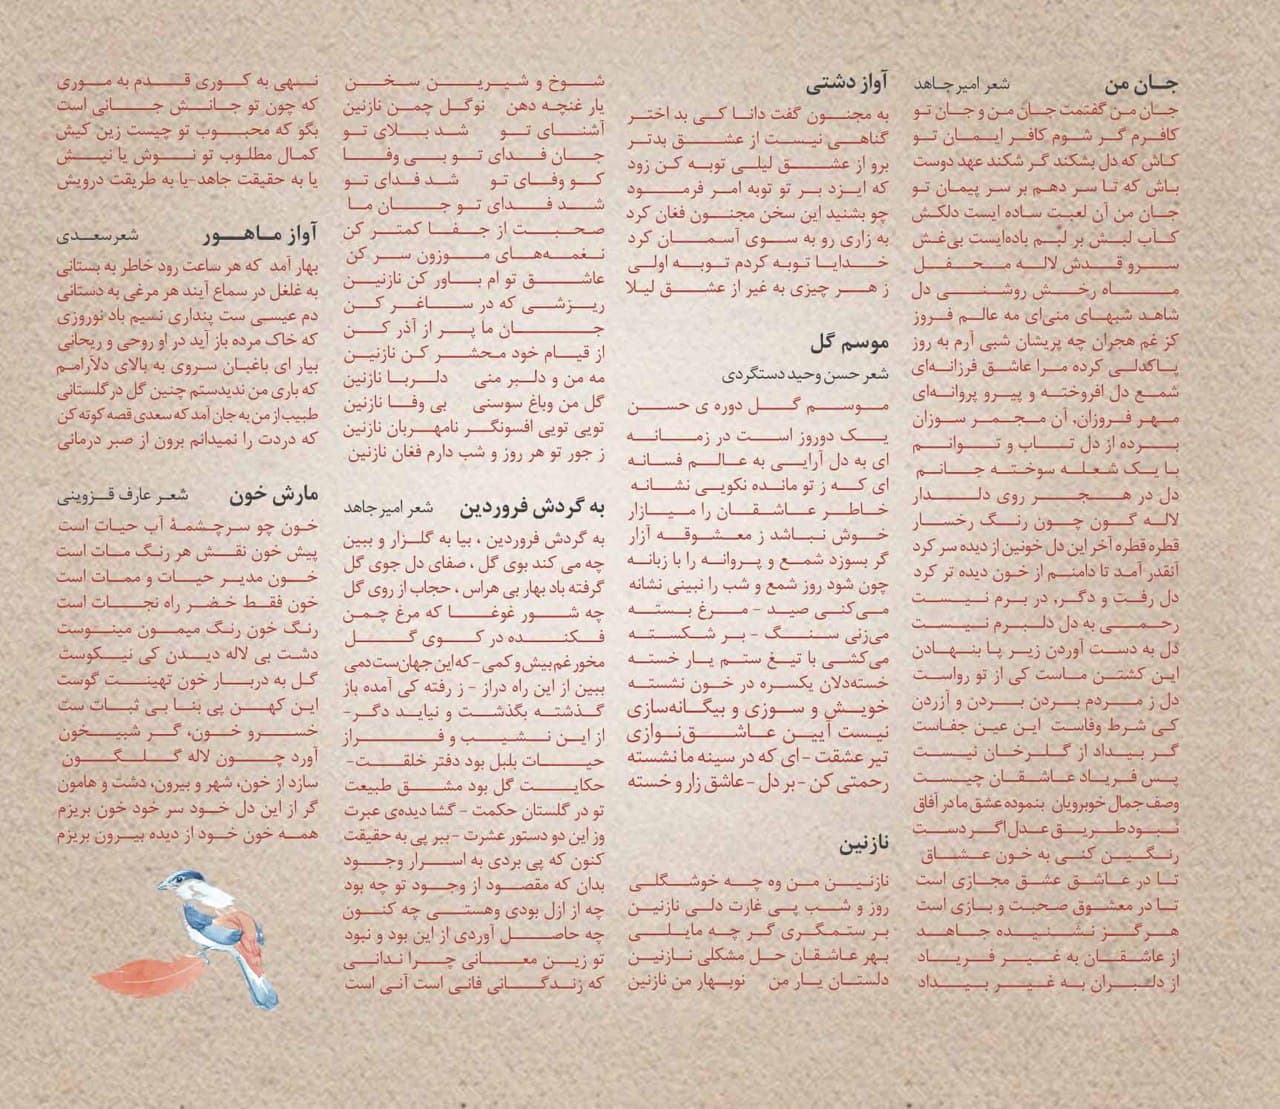 جان من شعر امیر جاهد
جان من گفتمت جان من و جان تو
کافرم گر شوم کافر ایمان تو
کاش که دل بشکند گر شکند عهد دوست
باش که تا سر دهم بر سر پیمان تو
جان من آن لعبت ساده ایست دلکش
کآب لبش بر لبم باده‌ایست بی‌غش
سرو قدش لاله محفل
ماه رخش روشنی دل
شاهد شبهای منی‌ای مه عالم فروز
کز غم هجران چه پریشان شبی آرم به روز
پاکدلی کرده مرا عاشق فرزانه‌ای
شمع دل افروخته و پیرو پروانه‌ای
مهر فروزان، آن مجمر سوزان
برده از دل تاب و توانم
با یک شعله سوخته جانم
دل در هجر روی دلدار
لاله گون چون رنگ رخسار
قطره قطره آخر این دل خونین از دیده سر کرد
آنقدر آمد تا دامنم از خون دیده تر کرد
دل رفت و دگر، در برم نیست
رحمی به دل دلبرم نیست
دل به دست آوردن زیر پا بنهادن
این کشتن ماست کی از تو رواست
دل ز مردم بردن بردن و آزردن
کی شرط وفاست این عین جفاست
گر بیداد از گلرخان نیست
پس فریاد عاشقان چیست
وصف جمال خوبرویان بنموده عشق ما در آفاق
نبود طریق عدل اگر دست
رنگین کنی به خون عشاق
تا در عاشق عشق مجازی است
تا در معشوق صحبت و بازی است
هرگز نشنیده جاهد
از عاشقان به غیر فریاد
از دلبران به غیر بیداد
آواز دشتی
به مجنون گفت دانا کی بد اختر
گناهی نیست از عشق بدتر
برو از عشق لیلی توبه کن زود
که ایزد بر تو توبه امر فرمود
چو بشنید این سخن مجنون فغان کرد
به زاری رو به سوی آسمان کرد
خدایا توبه کردم توبه اولی
ز هر چیزی به غیر از عشق لیلا
موسم گل
شعر حسن وحید دستگردی
موسم گل دوره ی حسن
یک دوروز است در زمانه
ای به دل آرایی به عالم فسانه
ای که ز تو مانده نکویی نشانه
خاطر عاشقان را میازار
خوش نباشد ز معشوقه آزار
گر بسوزد شمع و پروانه را با زبانه
چون شود روز شمع و شب را نبینی نشانه
می‌کنی صید - مرغ بسته
می‌زنی سنگ - بر شکسته
می‌کشی با تیغ ستم یار خسته
خسته‌دلان یکسره در خون نشسته
خویش و سوزی و بیگانه‌سازی
نیست آیین عاشق‌نوازی
تیر عشقت - ای که در سینه ما نشسته
رحمتی کن - بر دل - عاشق زار و خسته
نازنین
نازنین من وه چه خوشگلی
روز و شب پی غارت دلی نازنین
بر ستمگری گر چه مایلی
بهر عاشقان حل مشکلی نازنین
دلستان یار من نوبهار من نازنین
شوخ و شیرین سخن
یار غنچه دهن نوگل چمن نازنین
آشنای تو شد بلای تو
جان فدای تو بی وفا
کو وفای تو شد فدای تو
شد فدای تو جان ما
صحبت از جفا کمتر کن
نغمه‌های موزون سر کن
عاشق تو ام باور کن نازنین
ریزشی که در ساغر کن
جان ما پر از آذر کن
از قیام خود محشر کن نازنین
مه من و دلبر منی دلربا نازنین
گل من وباغ سوسنی بی وفا نازنین
تویی تویی افسونگر نامهربان نازنین
ز جور تو هر روز و شب دارم فغان نازنین
به گردش فروردین شعر امیر جاهد
به گردش فروردین ، بیا به گلزار و ببین
چه می کند بوی گل ، صفای دل جوی گل
گرفته باد بهار بی هراس ، حجاب از روی گل
چه شور غوغا که مرغ چمن
فکنده در کوی گل
مخور غم بیش و کمی - که این جهان ست دمی
ببین از این راه دراز - ز رفته کی آمده باز
گذشته بگذشت و نیاید دگر-
از این نشیب و فراز
حیات بلبل بود دفتر خلقت-
حکایت گل بود مشق طبیعت
تو در گلستان حکمت - گشا دیده‌ی عبرت
وز این دو دستور عشرت - ببر پی به حقیقت
کنون که پی بردی به اسرار وجود
بدان که مقصود از وجود تو چه بود
چه از ازل بودی وهستی چه کنون
چه حاصل آوردی از این بود و نبود
تو زین معانی چرا ندانی
که زندگانی فانی است آنی است
نهی به کوری قدم به موری
که چون تو جانش جانی است
بگو که محبوب تو چیست زین کیش
کمال مطلوب تو نوش یا نیش
یا به حقیقت جاهد-یا به طریقت درویش
آواز ماهور شعر سعدی
بهار آمد که هر ساعت رود خاطر به بستانی
به غلغل در سماع آیند هر مرغی به دستانی
دم عیسی ست پنداری نسیم باد نوروزی
که خاک مرده باز آید در او روحی و ریحانی
بیار ای باغبان سروی به بالای دلآرامم
که باری من ندیدستم چنین گل در گلستانی
طبیب از من به جان آمد که سعدی قصه کوته کن
که دردت را نمیدانم برون از صبر درمانی
مارش خون شعر عارف قزوینی
خون چو سرچشمهٔ آب حیات است
پیش خون نقش هر رنگ مات است
خون مدیر حیات و ممات است
خون فقط خضر راه نجات است
رنگ خون رنگ میمون مینوست
دشت بی لاله دیدن کی نیکوست
گل به دربار خون تهینت گوست
این کهن پی بنا بی ثبات ست
خسرو خون، گر شبیخون
آورد چون لاله گلگون
سازد از خون، شهر و بیرون، دشت و هامون
گر از این دل خود سر خود خون بریزم
همه خون خود از دیده بیرون بریزم